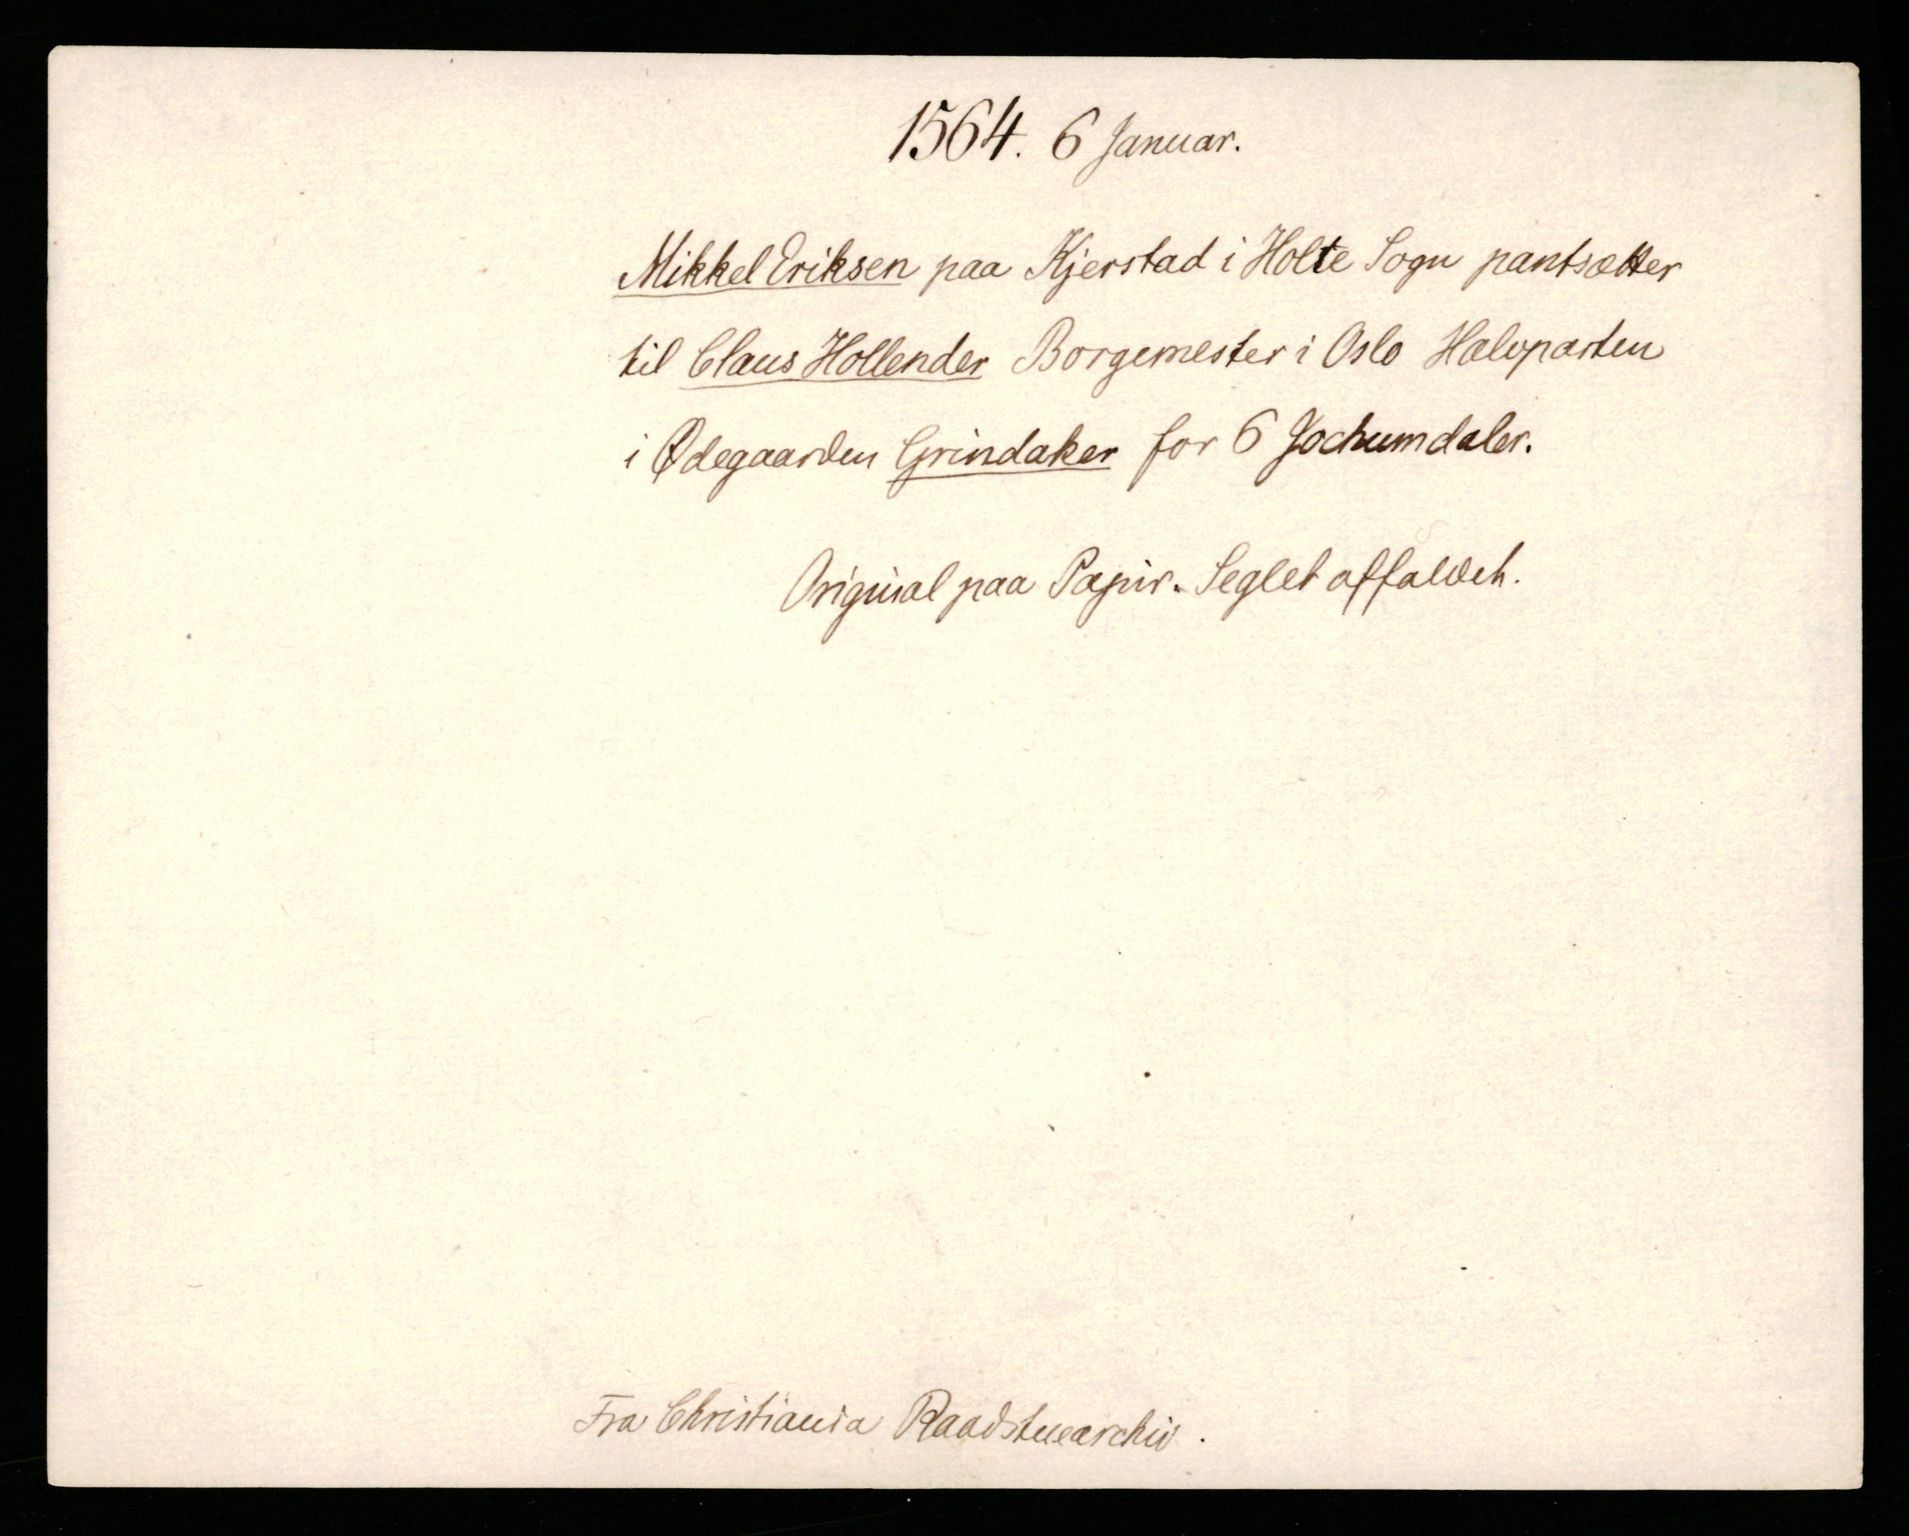 1564. 6 Januar.
Mikkel Eriksen paa Kjerstad i Holte Sogn pantsætter
til Claus Hollender Borgemester i Oslo Halvparten
i Ødegaarden Grindaker for 6 Jochumdaler.
Original paa Papir. Seglet affaldet.
Fra Christiania Raadstuearchiv.